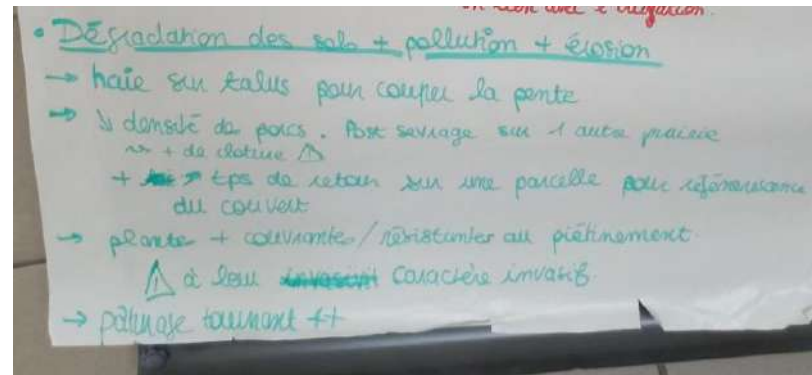 en lien avec l'irrigation.
• Dégradation des sols + pollution + érosion
→ haie sur talus pour couper la pente
→ ↘ densité de porcs. Post sevrage sur 1 autre prairie
~> + de cloture ⚠
+ ↗ tps de retour sur une parcelle pour régénérescence
du couvert
→ plantes + couvrantes/résistantes au piétinement.
⚠ à leur caractère invasif.
→ pâturage tournant ++